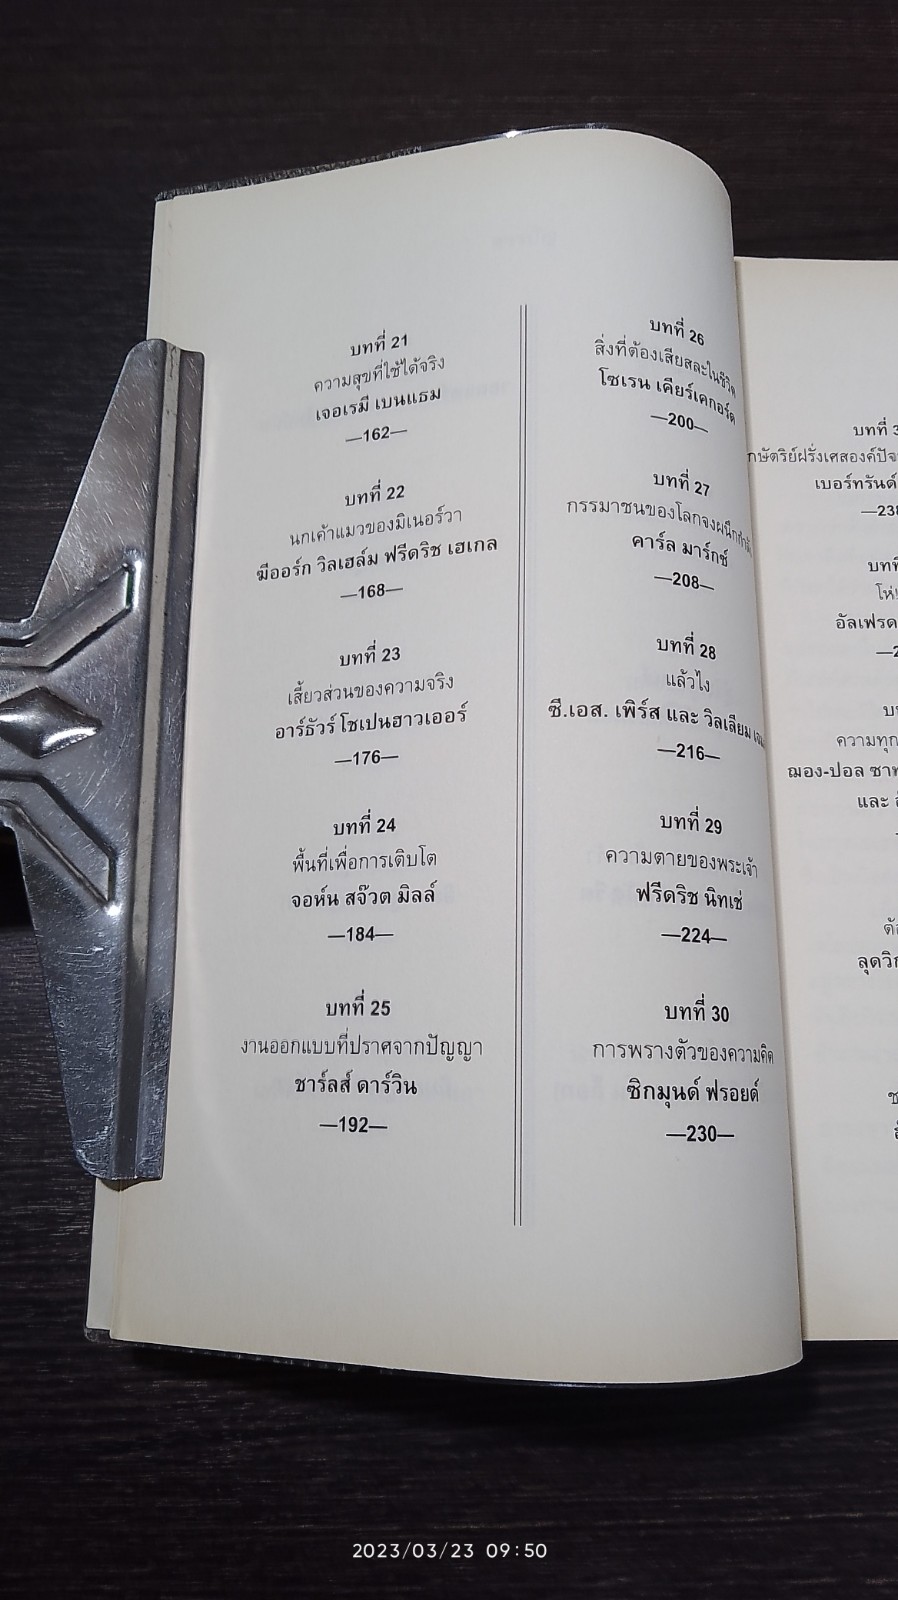 บทที่ 21
ความสุขที่ใช้ได้จริง
เจอเรมี เบนแธม
—162—
บทที่ 22
นกเค้าแมวของมิเนอร์วา
ฆีออร์ก วิลเฮล์ม ฟรีดริช เฮเกล
—168—
บทที่ 23
เสี้ยวส่วนของความจริง
อาร์ธัวร์ โชเปนฮาวเออร์
—176—
บทที่ 24
พื้นที่เพื่อการเติบโต
จอห์น สจ๊วต มิลล์
—184—
บทที่ 25
งานออกแบบที่ปราศจากปัญญา
ชาร์ลส์ ดาร์วิน
—192—
บทที่ 26
สิ่งที่ต้องเสียสละในชีวิต
โซเรน เคียร์เคกอร์ด
—200—
บทที่ 27
กรรมาชนของโลกจงผนึกกำลัง
คาร์ล มาร์กช์
—208—
บทที่ 28
แล้วไง
ซี.เอส. เพิร์ส และ วิลเลียม
—216—
บทที่ 29
ความตายของพระเจ้า
ฟรีดริช นิทเช่
—224—
บทที่ 30
การพรางตัวของความคิด
ซิกมุนด์ ฟรอยด์
—230—
บทที่ 3
กษัตริย์ฝรั่งเศสองค์ปัจ
เบอร์ทรันด์
—238
บทที่
โห่!
อัลเฟรด
—2
บท
ความทุก
ฌอง-ปอล ซาท
และ
ต้อ
ลุดวิก
2023/03/23 09:50